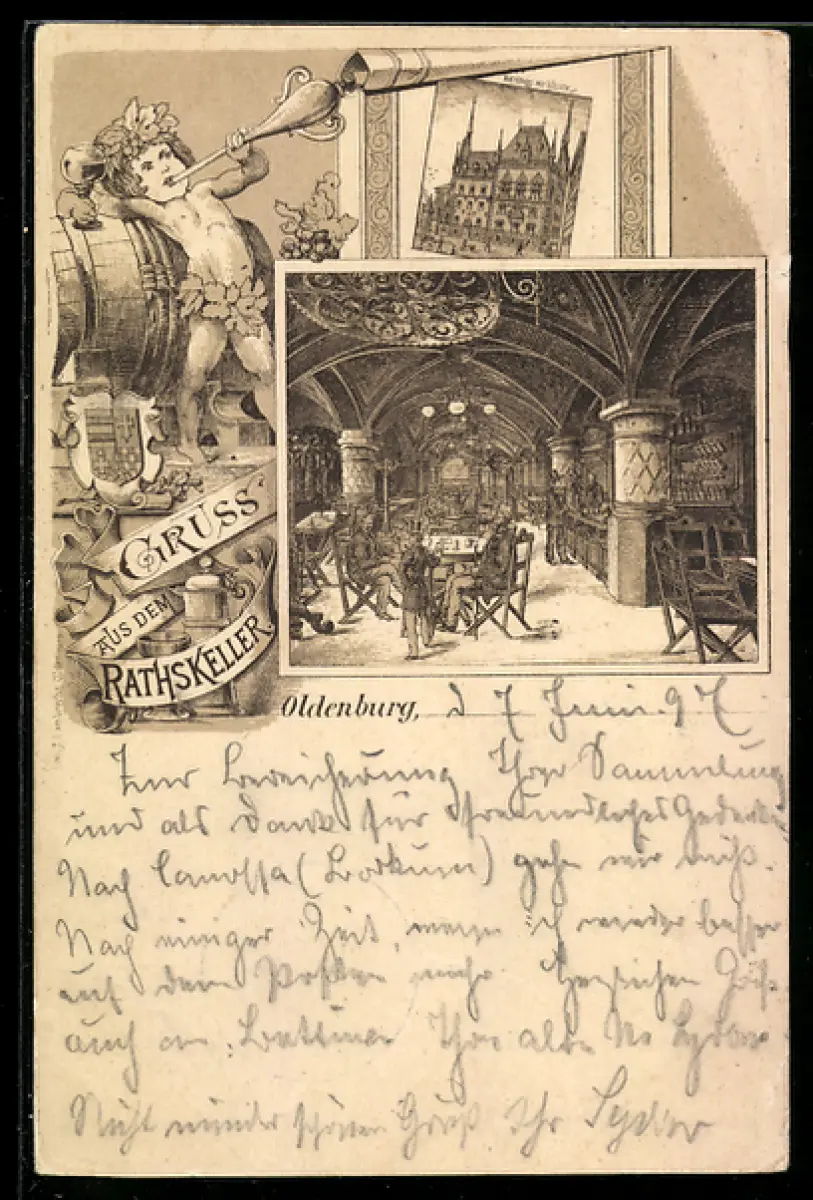 GRUSS
AUS DEM
RATHSKELLER
Oldenburg, d 7 Juni. 97
Zur Bereicherung Ihrer Sammlung
und als Dank für freundliches Gedenken
Nach Canossa (Borkum) gehn wir nicht.
Nach einiger Zeit, wenn ich wieder besser
auf dem Posten mehr Herzlichen Gruß
auch an Ihre
Nicht minder schönen Gruß Ihr